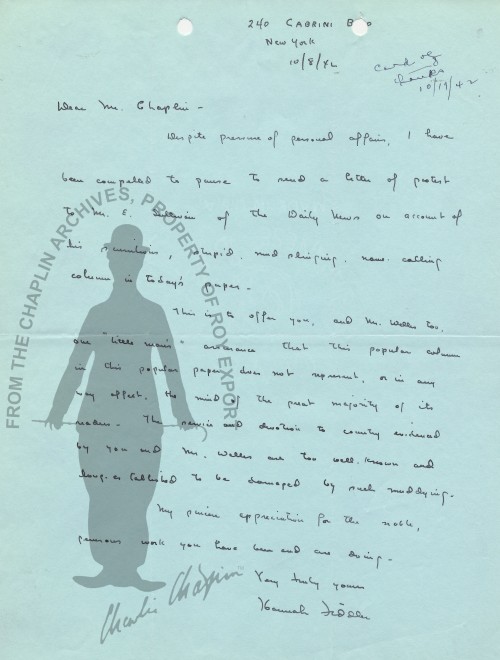 240 CABRINI
New York
10/8/42
card of
thanks
10/19/42
Dear Mr. Chaplin -
Despite pressure of personal affairs, I have
been compelled to pause to send a letter of protest
to Mr. E. Sullivan of the Daily News on account of
his stupid, mud slinging, name calling
column in today's paper -
This is to offer you, and Mr. Welles too,
one "little man's" assurance that this popular column
in this popular paper does not represent, or in any
way affect, the mind of the great majority of its
readers. The service and devotion to country evidenced
by you and Mr. Welles are too well known and
long established to be damaged by such muddying.
My sincere appreciation for the noble,
generous work you have been and are doing -
Very truly yours
Hannah
FROM THE CHAPLIN ARCHIVES, PROPERTY OF ROY EXPORT
Charlie Chaplin